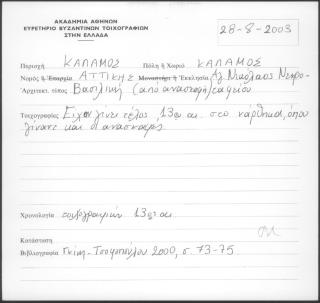 ΑΚΑΔΗΜΙΑ ΑΘΗΝΩΝ
ΕΥΡΕΤΗΡΙΟ ΒΥΖΑΝΤΙΝΩΝ ΤΟΙΧΟΓΡΑΦΙΩΝ
ΣΤΗΝ ΕΛΛΑΔΑ
28-8-2003
Περιοχή ΚΑΛΑΜΟΣ Πόλη ή Χωριό ΚΑΛΑΜΟΣ
Νομός ή Επαρχία ΑΤΤΙΚΗΣ Μοναστήρι ή Εκκλησία Αγ. Νικόλαος
Αρχιτεκτ. τύπος Βασιλική (απο ανασκαφή)
Τοιχογραφίες Είχαν γίνει τέλος 13ου αι. στο νάρθηκα, όπου
γίνανε και οι ανασκαφές.
Χρονολογία τοιχογραφιών 13ου αι.
Κατάσταση
Βιβλιογραφία Γκίνη-Τσοφοπούλου 2000, σ. 73-75